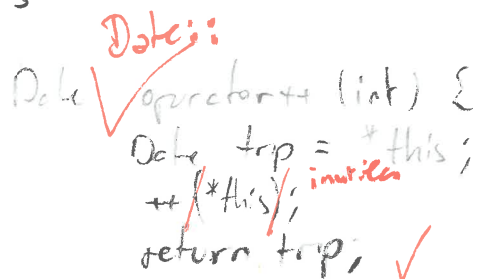 Date::
Date operator++ (int) {
Date trp = *this;
++(*this); inutiles
return trp;